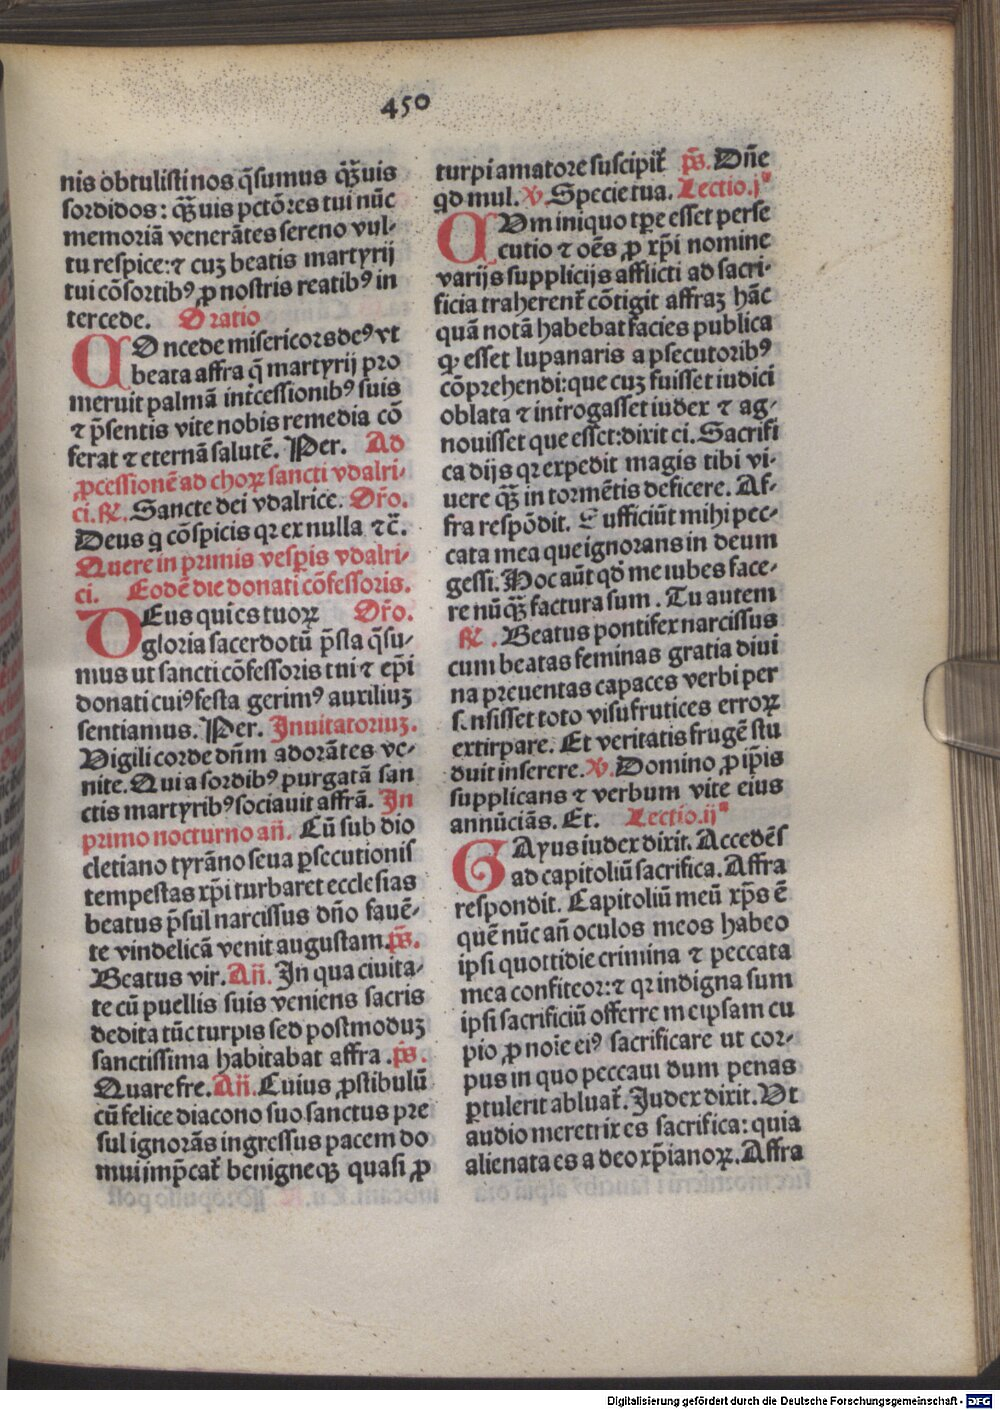 450
nis obtulisti nos q̃sumus qȝ̃uis
sordidos: qȝ̃uis pctõres tui nũc
memoriã venerãtes sereno vul-
tu respice: ⁊ cuȝ beatis martyrij
tui cõsortibꝰ ꝓ nostris reatibꝰ in
tercede. Oratio
COncede misericors deꝰ vt
beata affra q̃ martyrij pro
meruit palmã int̃cessionibꝰ suis
⁊ p̃sentis vite nobis remedia cõ
ferat ⁊ eternã salutẽ. Per. Ad
ꝓcessionẽ ad choꝝ sancti vdalri-
ci. ℟. Sancte dei vdalrice. Or̃o.
Deus q cõspicis qꝛ ex nulla ⁊c̃.
Quere in primis vesꝑis vdalri-
ci. Eodẽ die donati cõfessoris.
DEus qui es tuoꝝ Or̃o.
gloria sacerdotũ p̃sta q̃su-
mus ut sancti cõfessoris tui ⁊ ep̃i
donati cuiꝰ festa gerimꝰ auxiliuȝ
sentiamus. Per. Inuitatoriuȝ.
Vigili corde dñm adorãtes ve-
nite. Qui a sordibꝰ purgatã san
ctis martyribꝰ sociauit affrã. In
primo nocturno añ. Cũ sub dio
cletiano tyrãno seua ꝑsecutionis
tempestas xp̃i turbaret ecclesias
beatus p̃sul narcissus dño fauẽ-
te vindelicã venit augustam. p̃s.
Beatus vir. Añ. In qua ciuita-
te cũ puellis suis veniens sacris
dedita tũc turpis sed postmoduȝ
sanctissima habitabat affra. p̃s.
Quare fre. Añ. Cuius ꝓstibulũ
cũ felice diacono suo sanctus pre
sul ignorãs ingressus pacem do
mui imp̃cat̃ benigneqȝ quasi ꝓ
turpi amatore suscipit̃ p̃s. Dñe
qd mul. ℣. Specie tua. Lectio. j ͣ
CVm iniquo tꝑe esset perse
cutio ⁊ oẽs ꝓ xp̃i nomine
varijs supplicijs afflicti ad sacri-
ficia traherent̃ cõtigit affraȝ hãc
quã notã habebat facies publica
ꝙ esset lupanaris a ꝑsecutoribꝰ
cõprehendi: que cuȝ fuisset iudici
oblata ⁊ int̃rogasset iudex ⁊ ag-
nouisset que esset: dixit ei. Sacrifi
ca dijs qꝛ expedit magis tibi vi-
uere qȝ̃ in tormẽtis deficere. Af-
fra respõdit. Sufficiũt mihi pec-
cata mea que ignorans in deum
gessi. Hoc aũt qd̃ me iubes face-
re nũqȝ̃ factura sum. Tu autem
℟. Beatus pontifex narcissus
cum beatas feminas gratia diui
na preuentas capaces verbi per
s.nsisset toto visu frutices erroꝝ
extirpare. Et veritatis frugẽ stu
duit inserere. ℣. Domino ꝓ ip̃is
supplicans ⁊ verbum vite eius
annũciãs. Et. Lectio. ij ͣ
GAyus iudex dixit. Accedẽs
ad capitoliũ sacrifica. Affra
respondit. Capitoliũ meũ xp̃s ẽ
quẽ nũc añ oculos meos habeo
ipsi quottidie crimina ⁊ peccata
mea confiteor: ⁊ qꝛ indigna sum
ipsi sacrificiũ offerre meipsam cu
pio ꝓ noĩe eiꝰ sacrificare ut cor-
pus in quo peccaui dum penas
ꝑtulerit abluat̃. Judex dixit. Vt
audio meretrix es sacrifica: quia
alienata es a deo xp̃ianoꝝ. Affra
Digitalisierung gefördert durch die Deutsche Forschungsgemeinschaft - DFG